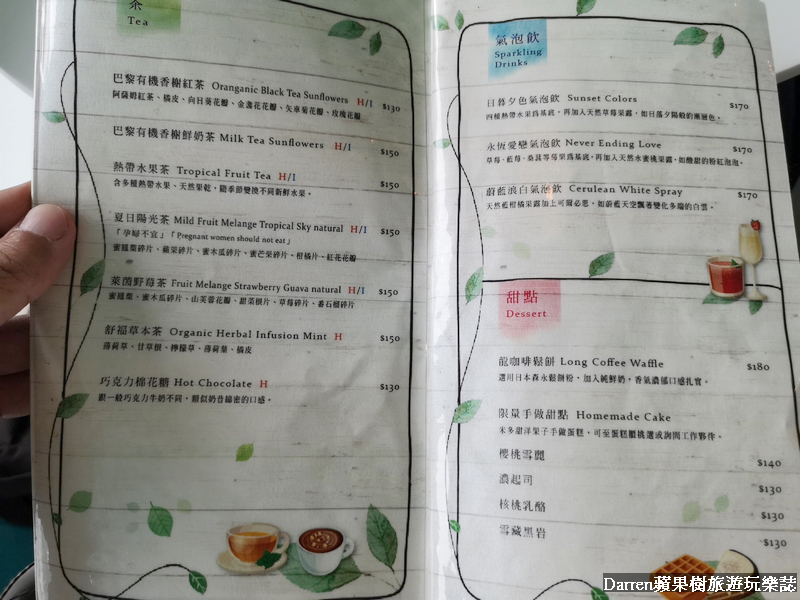 茶
Tea
巴黎有機香榭紅茶 Oranganic Black Tea Sunflowers H/I $130
阿薩姆紅茶、橘皮、向日葵花瓣、金盞花花瓣、矢車菊花瓣、玫瑰花瓣
巴黎有機香榭鮮奶茶 Milk Tea Sunflowers H/I $150
熱帶水果茶 Tropical Fruit Tea H/I $150
含多種熱帶水果、天然果乾，隨季節變換不同新鮮水果。
夏日陽光茶 Mild Fruit Melange Tropical Sky natural H/I $150
「孕婦不宜」「Pregnant women should not eat」
蜜鳳梨碎片、蘋果碎片、蜜木瓜碎片、蜜芒果碎片、柑橘片、紅花花瓣
萊茵野莓茶 Fruit Melange Strawberry Guava natural H/I $150
蜜鳳梨、蜜木瓜碎片、山芙蓉花瓣、甜菜根片、草莓碎片、番石榴碎片
舒福草本茶 Organic Herbal Infusion Mint H $150
薄荷草、甘草根、檸檬草、薄荷葉、橘皮
巧克力棉花糖 Hot Chocolate H $130
跟一般巧克力牛奶不同，類似奶昔綿密的口感。
氣泡飲
Sparkling
Drinks
日暮夕色氣泡飲 Sunset Colors $170
四種熱帶水果為基底，再加入天然草莓果露，如日落夕陽般的漸層色。
永恆愛戀氣泡飲 Never Ending Love $170
草莓、藍莓、桑葚等莓果為基底，再加入天然水蜜桃果露，如酸甜的粉紅泡泡。
蔚藍浪白氣泡飲 Cerulean White Spray $170
天然藍柑橘果露加上可爾必思，如蔚藍天空飄著變化多端的白雲。
甜點
Dessert
龍咖啡鬆餅 Long Coffee Waffle $180
選用日本森永鬆餅粉，加入純鮮奶，香氣濃郁口感扎實。
限量手做甜點 Homemade Cake
米多甜洋菓子手做蛋糕，可至蛋糕櫃挑選或詢問工作夥伴。
櫻桃雪麗 $140
濃起司 $130
核桃乳酪 $130
雪藏黑岩 $130
Darren蘋果樹旅遊玩樂誌